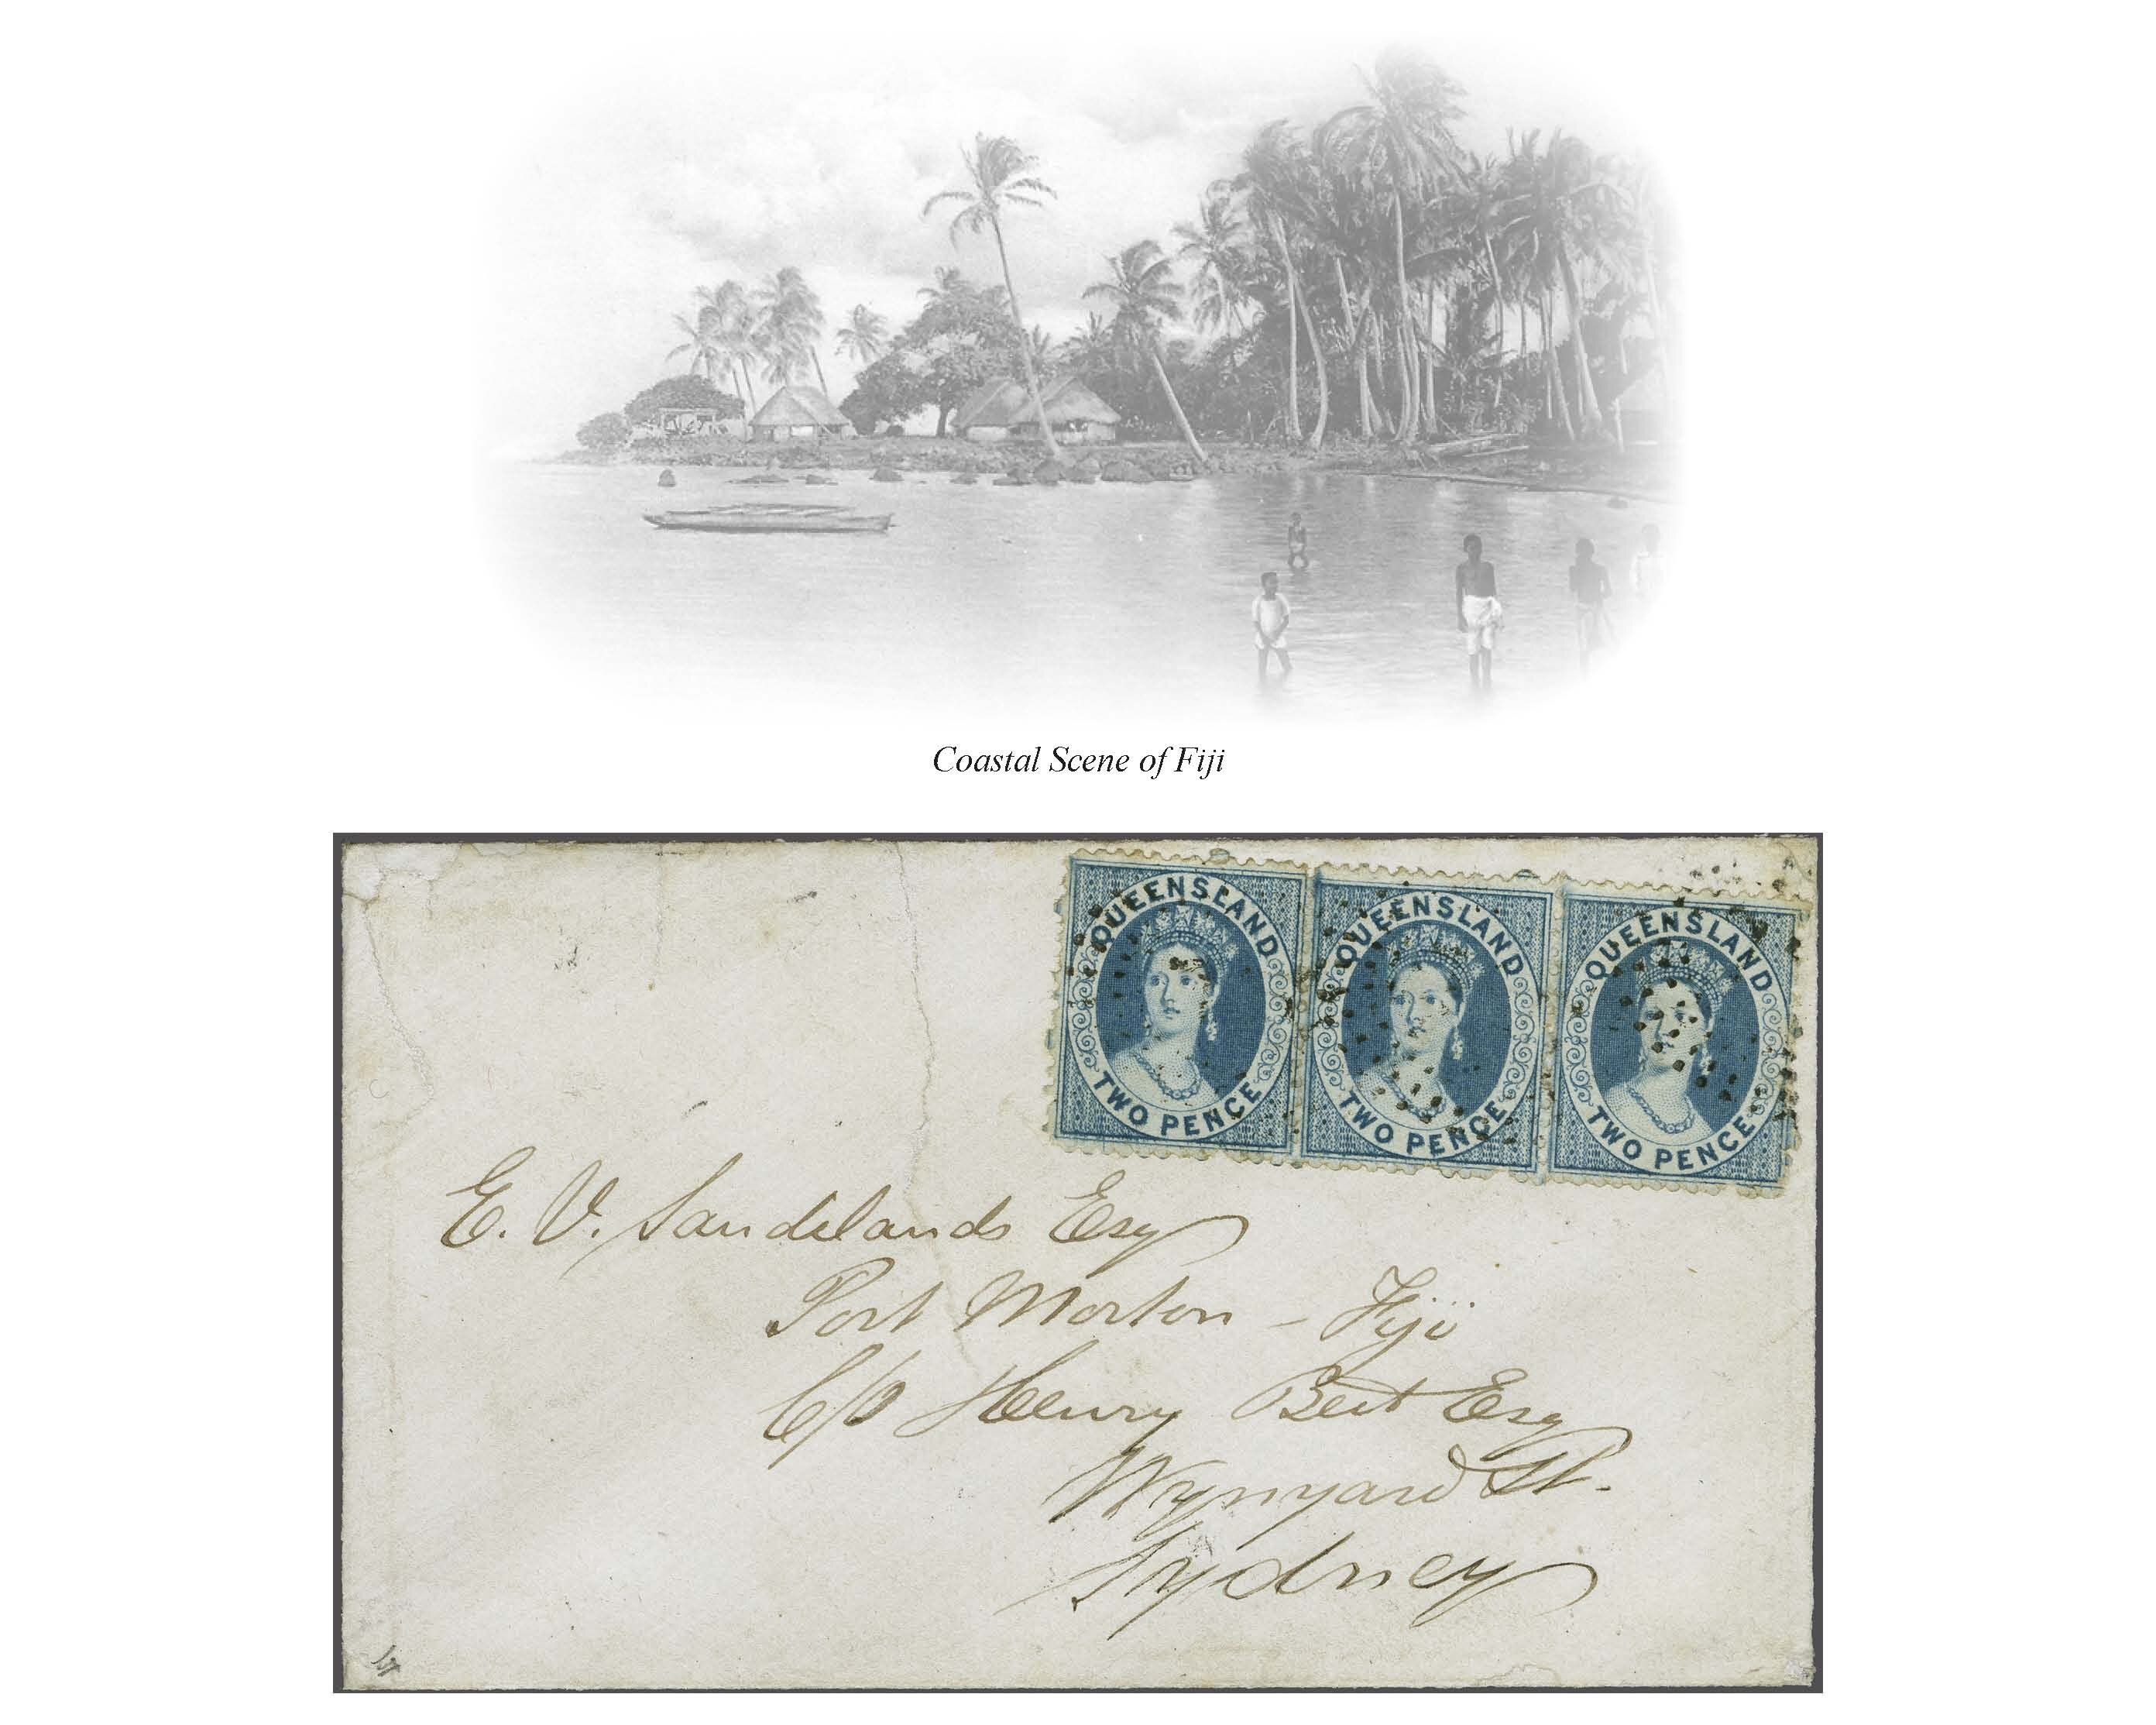 Coastal Scene of Fiji
QUEENSLAND
TWO PENCE
QUEENSLAND
TWO PENCE
QUEENSLAND
TWO PENCE
E. V. Sandelands Esq
Port Morton – Fiji
C/o Henry Beit Esq
Wynyard St.
Sydney